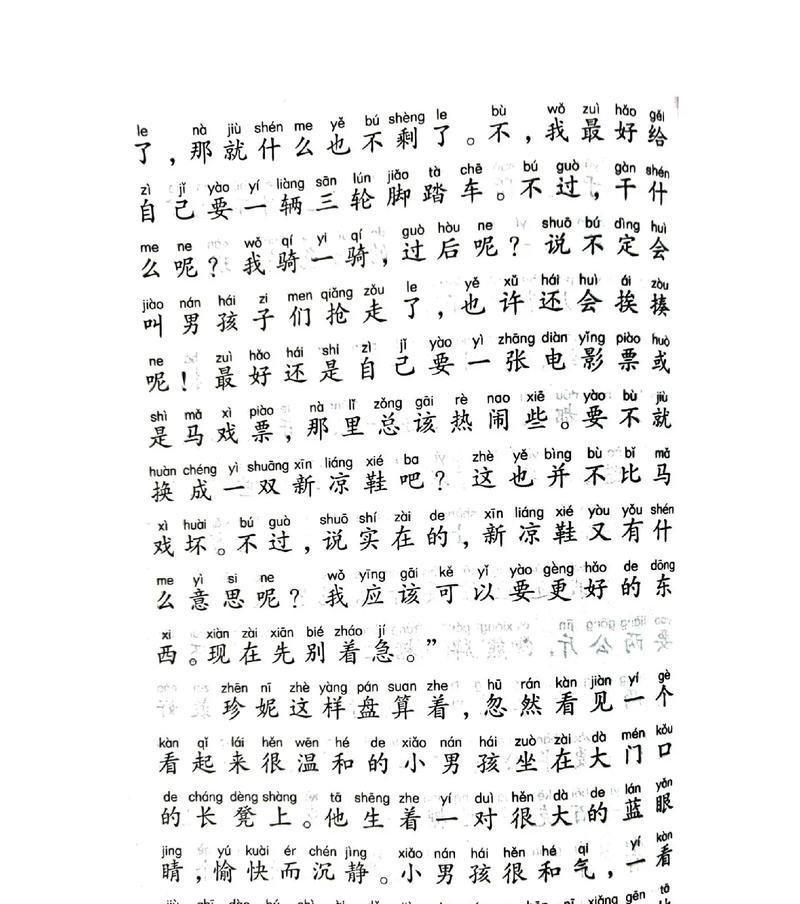 le nà jiù shén me yě bú shèng le bù wǒ zuì hǎo gěi
了，那就什么也不剩了。不，我最好给
zì jǐ yào yí liàng sān lún jiǎo tà chē bú guò gàn shén
自己要一辆三轮脚踏车。不过，干什
me ne wǒ qí yi qí guò hòu ne shuō bú dìng huì
么呢？我骑一骑，过后呢？说不定会
jiào nán hái zi men qiǎng zǒu le yě xǔ hái huì ái zòu
叫男孩子们抢走了，也许还会挨揍
ne zuì hǎo hái shi zì jǐ yào yì zhāng diàn yǐng piào huò
呢！最好还是自己要一张电影票或
shì mǎ xì piào nà lǐ zǒng gāi rè nao xiē yào bù jiù
是马戏票，那里总该热闹些。要不就
huàn chéng yì shuāng xīn liáng xié ba zhè yě bìng bù bǐ mǎ
换成一双新凉鞋吧？这也并不比马
xì huài bú guò shuō shí zài de xīn liáng xié yòu yǒu shén
戏坏。不过，说实在的，新凉鞋又有什
me yì si ne wǒ yīng gāi kě yǐ yào gèng hǎo de dōng
么意思呢？我应该可以要更好的东
xi xiàn zài xiān bié zháo jí
西。现在先别着急。”
zhēn nī zhè yàng pán suan zhe hū rán kàn jiàn yí gè
珍妮这样盘算着，忽然看见一个
kàn qǐ lái hěn wēn hé de xiǎo nán hái zuò zài dà mén kǒu
看起来很温和的小男孩坐在大门口
de cháng dèng shàng tā shēng zhe yí duì hěn dà de lán yǎn
的长凳上。他生着一对很大的蓝眼
jing yú kuài ér chén jìng xiǎo nán hái hěn hé qi yí kàn
睛，愉快而沉静。小男孩很和气，一看